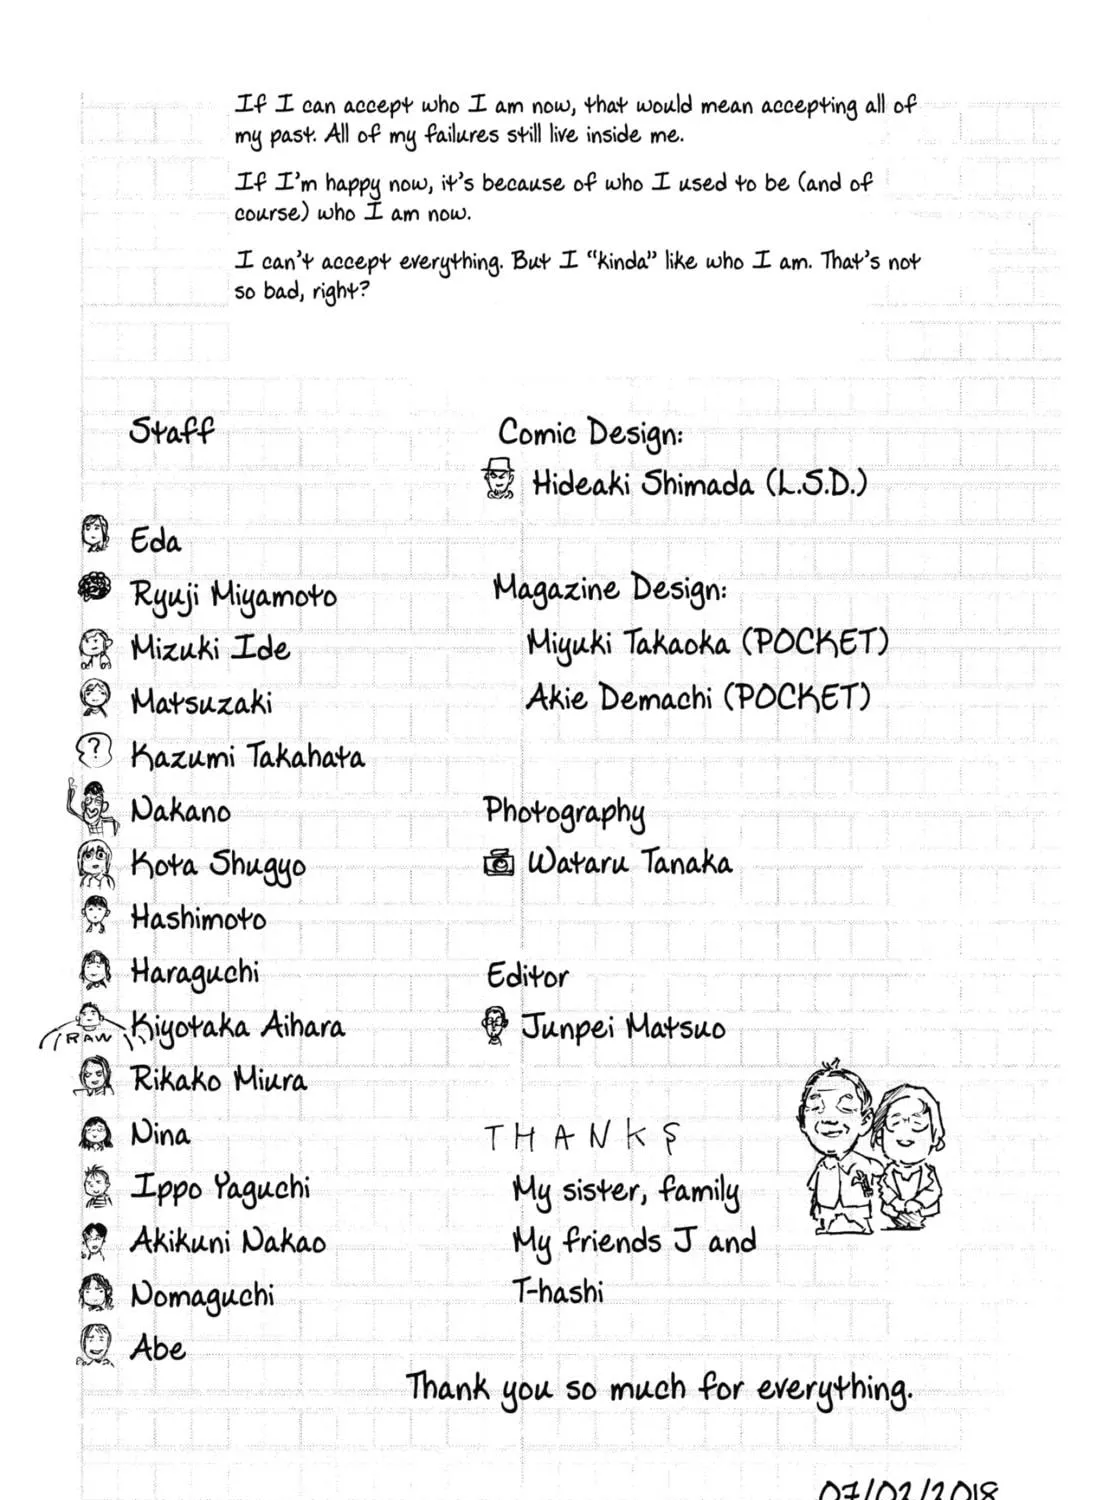 If I can accept who I am now, that would mean accepting all of
my past. All of my failures still live inside me.
If I'm happy now, it's because of who I used to be (and of
course) who I am now.
I can't accept everything. But I "kinda" like who I am. That's not
so bad, right?
Staff
Eda
Ryuji Miyamoto
Mizuki Ide
Matsuzaki
?
Kazumi Takahata
Nakano
Kota Shugyo
Hashimoto
Haraguchi
RAW
Kiyotaka Aihara
Rikako Miura
Nina
Ippo Yaguchi
Akikuni Nakao
Nomaguchi
Abe
Comic Design:
Hideaki Shimada (L.S.D.)
Magazine Design:
Miyuki Takaoka (POCKET)
Akie Demachi (POCKET)
Photography
Wataru Tanaka
Editor
Junpei Matsuo
THANKS
My sister, family
My friends J and
T-hashi
Thank you so much for everything.
07/02/2018